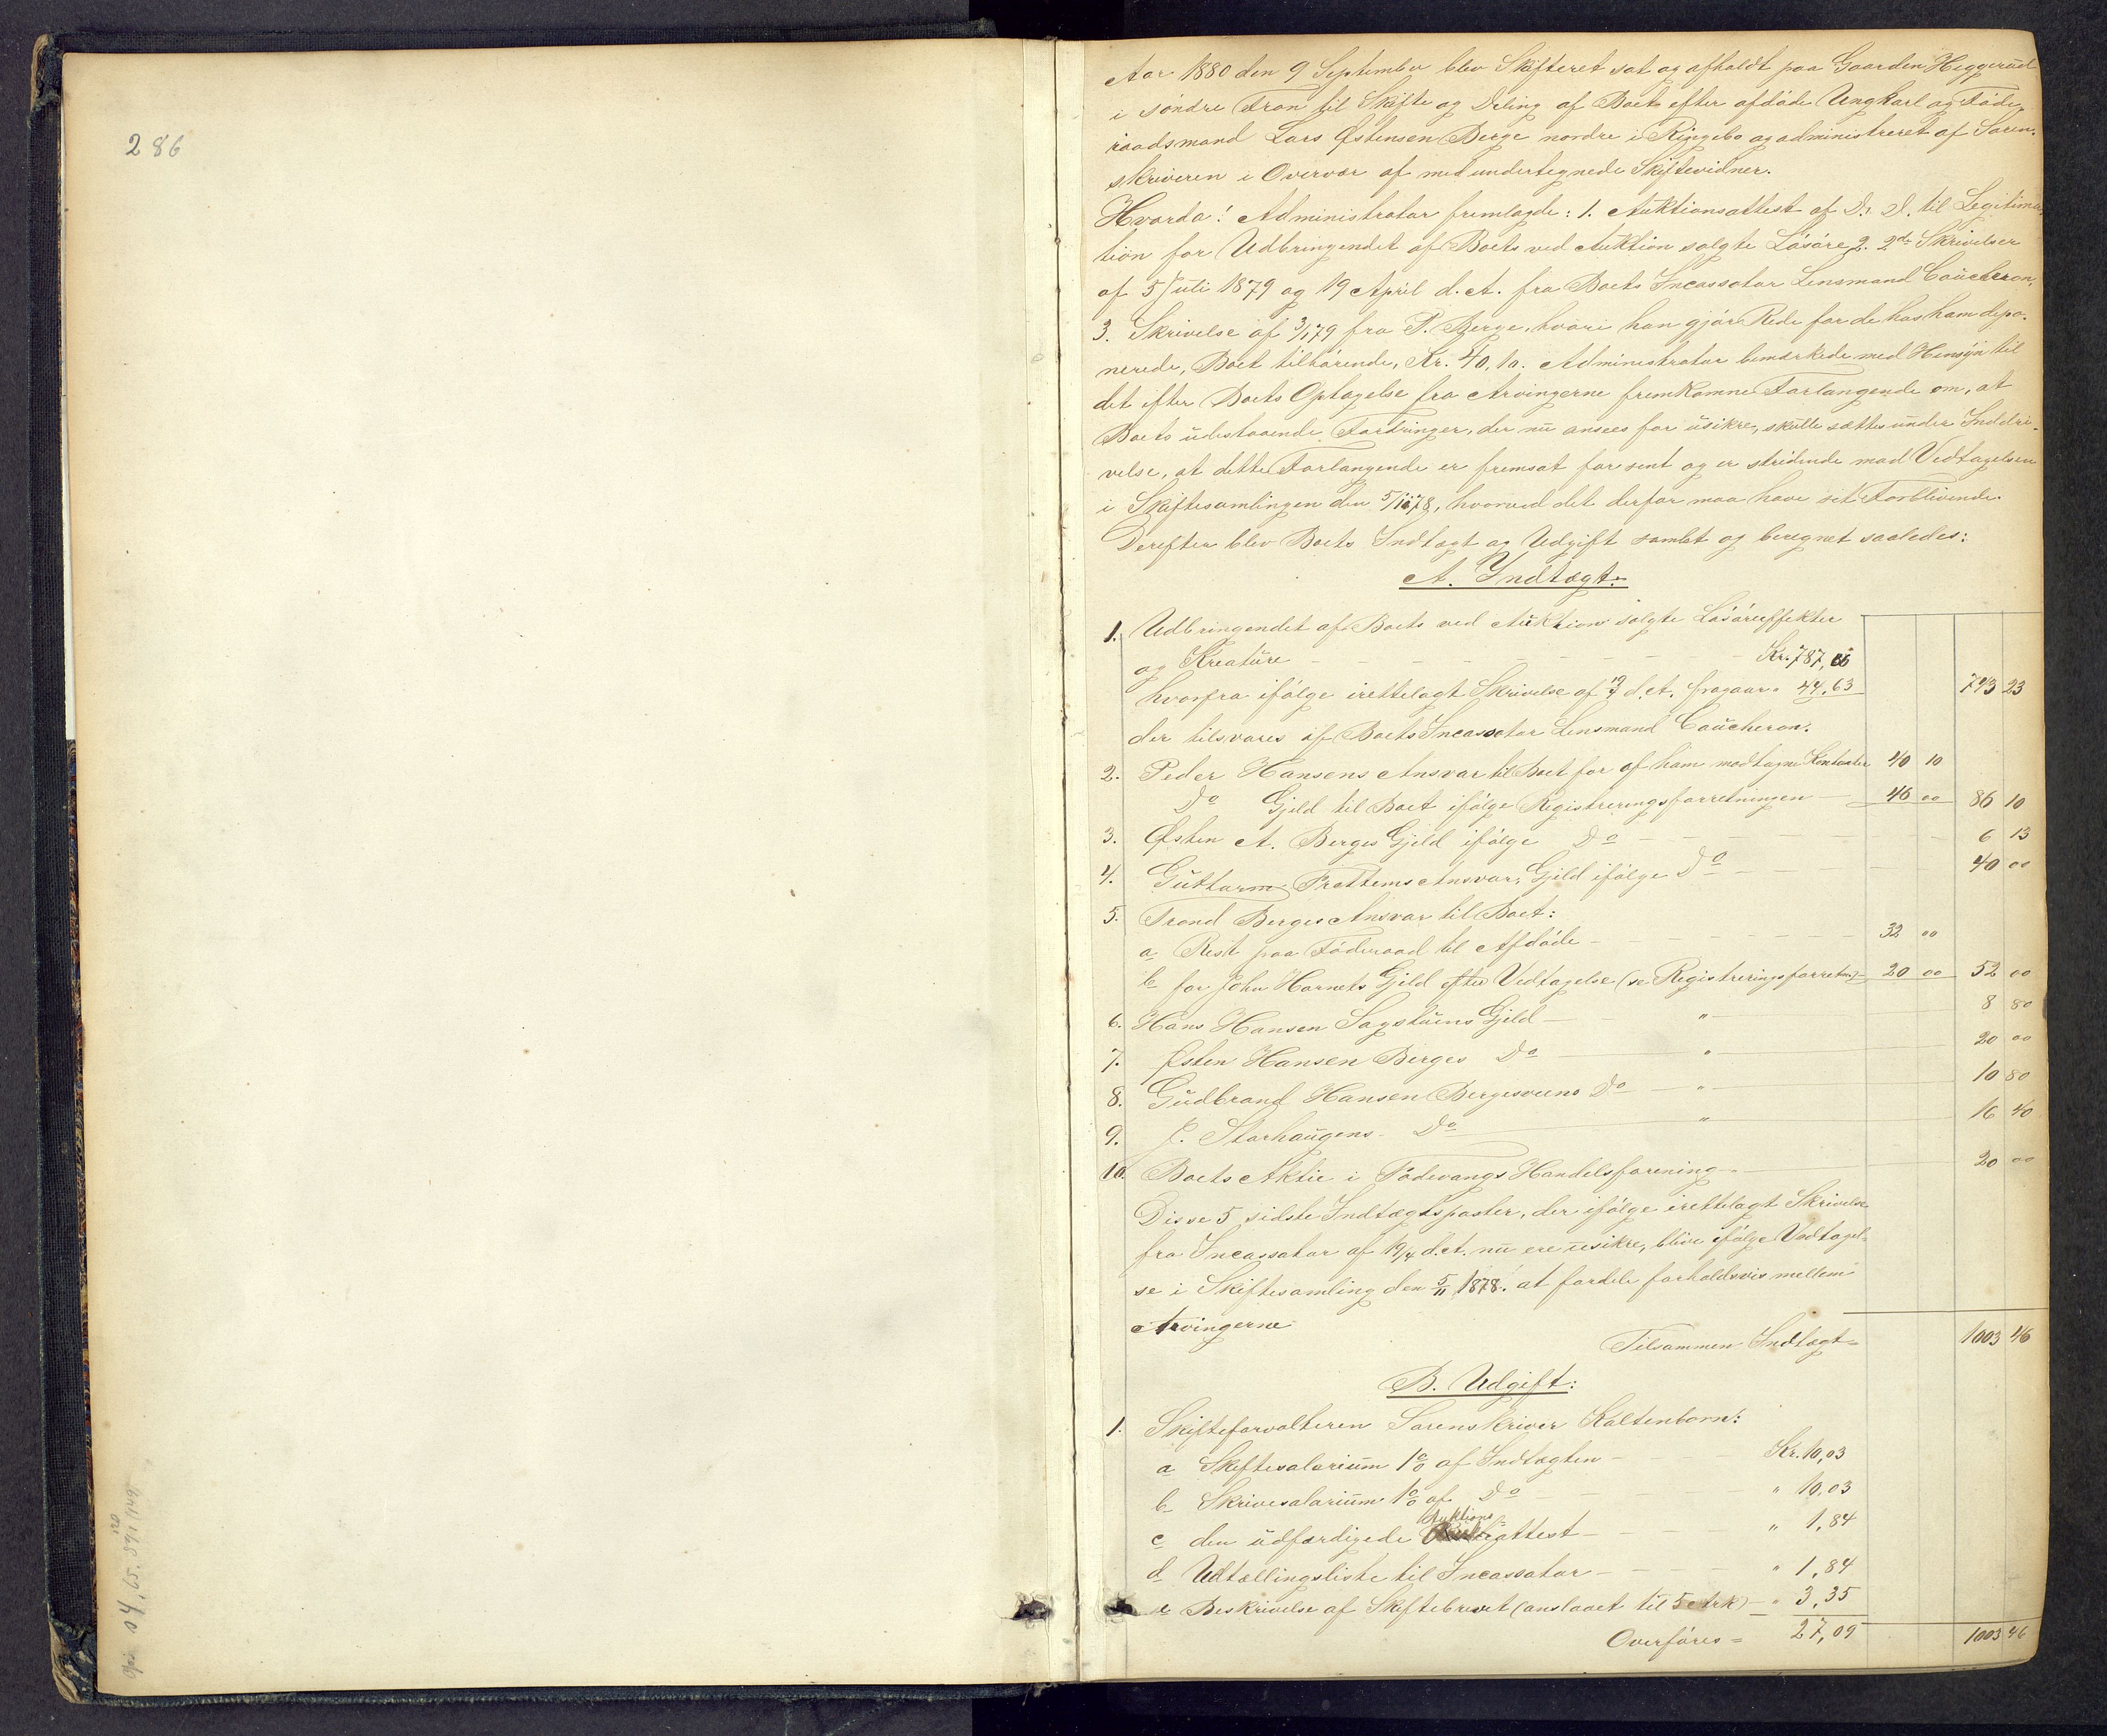 286
Aar 1880 den 9 September blev Skifteret sat og afholdt paa Gaarden Heggerud
i söndre Fron til Skifte og Deling af Boet efter afdöde Ungkarl og Föde-
raadsmand Lars Østensen Berge nordre i Ringebo og administreret af Soren-
skriveren i Overvær af medundertegnede Skiftevidner.
Hvorda! Administrator fremlagde: 1. Auktionsattest af D. D. til Legitima-
tion for Udbringendet af Boets ved Auktion solgte Lösöre, 2. 2de Skrivelser
af 5 Juli 1879 og 19 April d. A. fra Boets Incassator Lensmand Caucheron,
3. Skrivelse af 3/1 79 fra P. Berge, hvori han gjör Rede for de hos ham depo-
nerede, Boet tilhörende, Kr. 40,10. Administrator bemærkede med Hensyn til
det efter Boets Optagelse fra Arvingerne fremkomne Forlangende om, at
Boets udestaaende Fordringer, der nu ansees for usikre, skulle sættes under Inddri-
velse, at dette Forlangende er fremsat for sent og er stridende mod Vedtagelsen
i Skiftesamlingen den 5/11 78, hvorved det derfor maa have sit Forblivende.
Derefter blev Boets Indtægt og Udgift samlet og beregnet saaledes:
A. Indtægt.
1. Udbringendet af Boets ved Auktion solgte Lösöreeffekter
og Kreature — Kr. 787,86
hvorfra ifölge irettelagt Skrivelse af 19/4 d. A. fragaar " 44,63 743 23
der tilsvares af Boets Incassator Lensmand Caucheron.
2. Peder Hansens Ansvar til Boet for af ham modtagne Kontanter 40 10
Do Gjeld til Boet ifölge Registreringsforretningen — 46 00 86 10
3. Østen A. Berges Gjeld ifölge Do — 6 13
4. Guttorm Frettems Ansvar, Gjeld ifölge Do — 40 00
5. Trond Berges Ansvar til Boet:
a Rest paa Föderaad til Afdöde — 32 00
b for John Harnets Gjeld efter Vedtagelse (se Registreringsforretn) 20 00 52 00
6. Hans Hansen Sagstuens Gjeld — " — 8 80
7. Østen Hansen Berges Do — " — 20 00
8. Gudbrand Hansen Bergesveens Do — " — 10 80
9. J. Storhaugens Do — " — 16 40
10. Boets Aktie i Födevangs Handelsforening — 20 00
Disse 5 sidste Indtægtsposter, der ifölge irettelagt Skrivelse
fra Incassator af 19/4 d. A. nu ere usikre, blive ifölge Vedtagel-
se i Skiftesamling den 5/11 1878 at fordele forholdsvis mellem
Arvingerne
Tilsammen Indtægt = 1003 46
B. Udgift:
1. Skifteforvalteren Sorenskriver Kaltenborn:
a Skiftesalarium 1% af Indtægten — Kr. 10,03
b Skrivesalarium 1% af Do — " 10,03
c den udfærdigede Auktionsattest — " 1,84
d Udtællingsliste til Incassator — " 1,84
e Beskrivelse af Skiftebrevet (anslaaet til 5 Ark) — " 3,35
Overföres = 27,09 1003 46